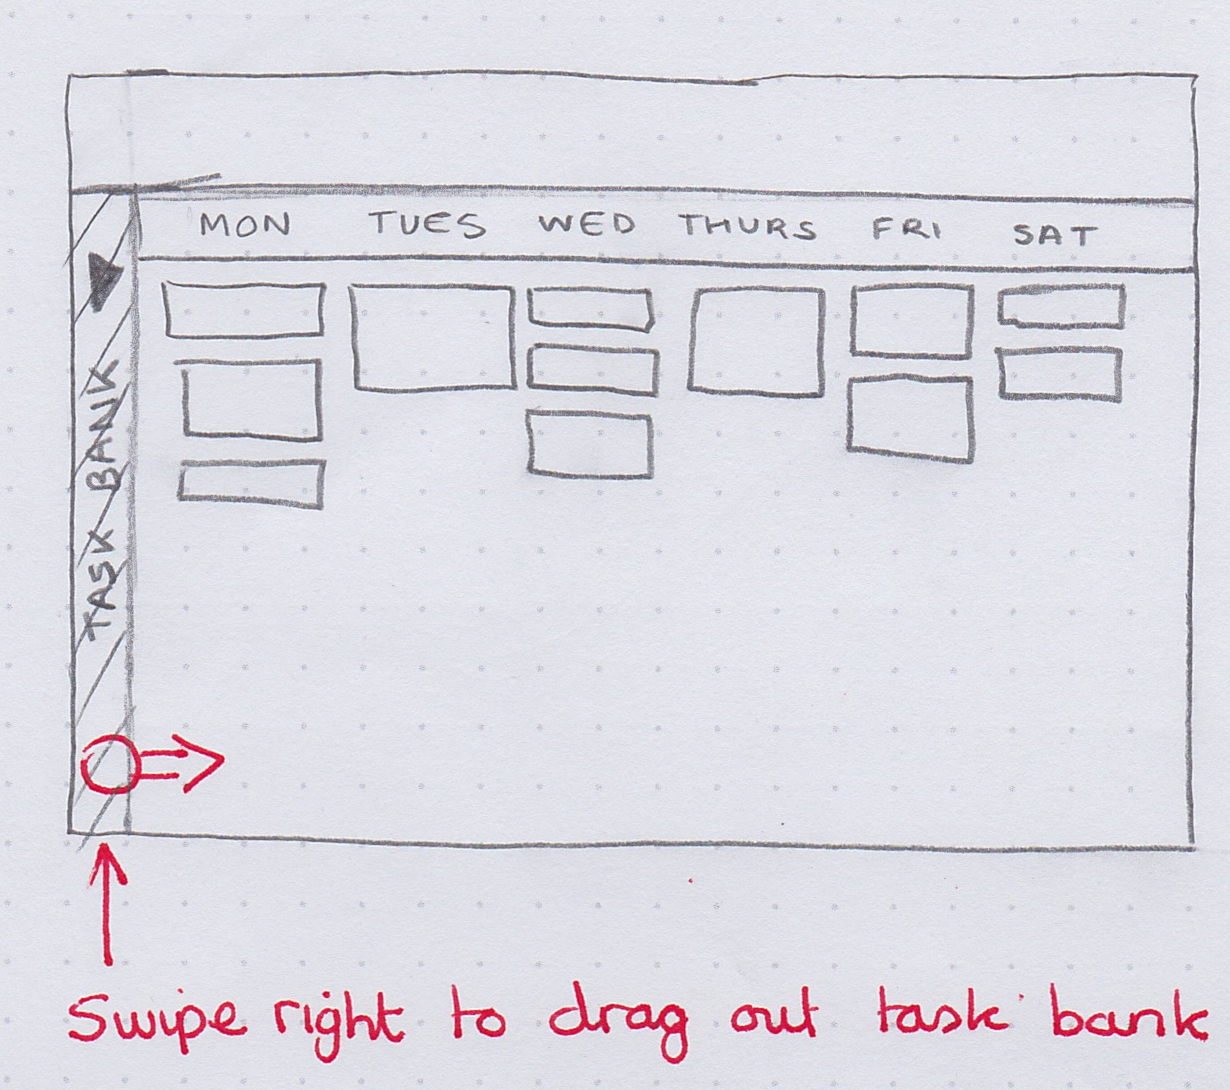 MON TUES WED THURS FRI SAT
TASK BANK
Swipe right to drag out task bank